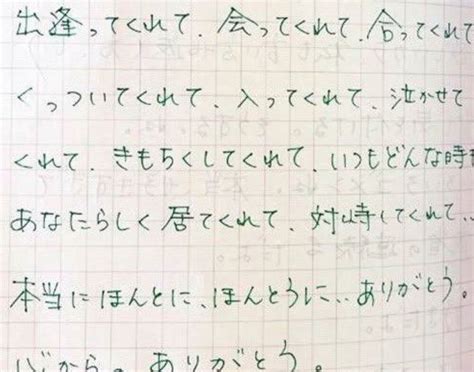 出逢ってくれて、会ってくれて、合ってくれて
くっついてくれて、入ってくれて、泣かせて
くれて、きもちくしてくれて、いつもどんな時も
あなたらしく居てくれて、対峙してくれて‥
本当にほんとに、ほんとうに‥ありがとう。
心から。ありがとう。